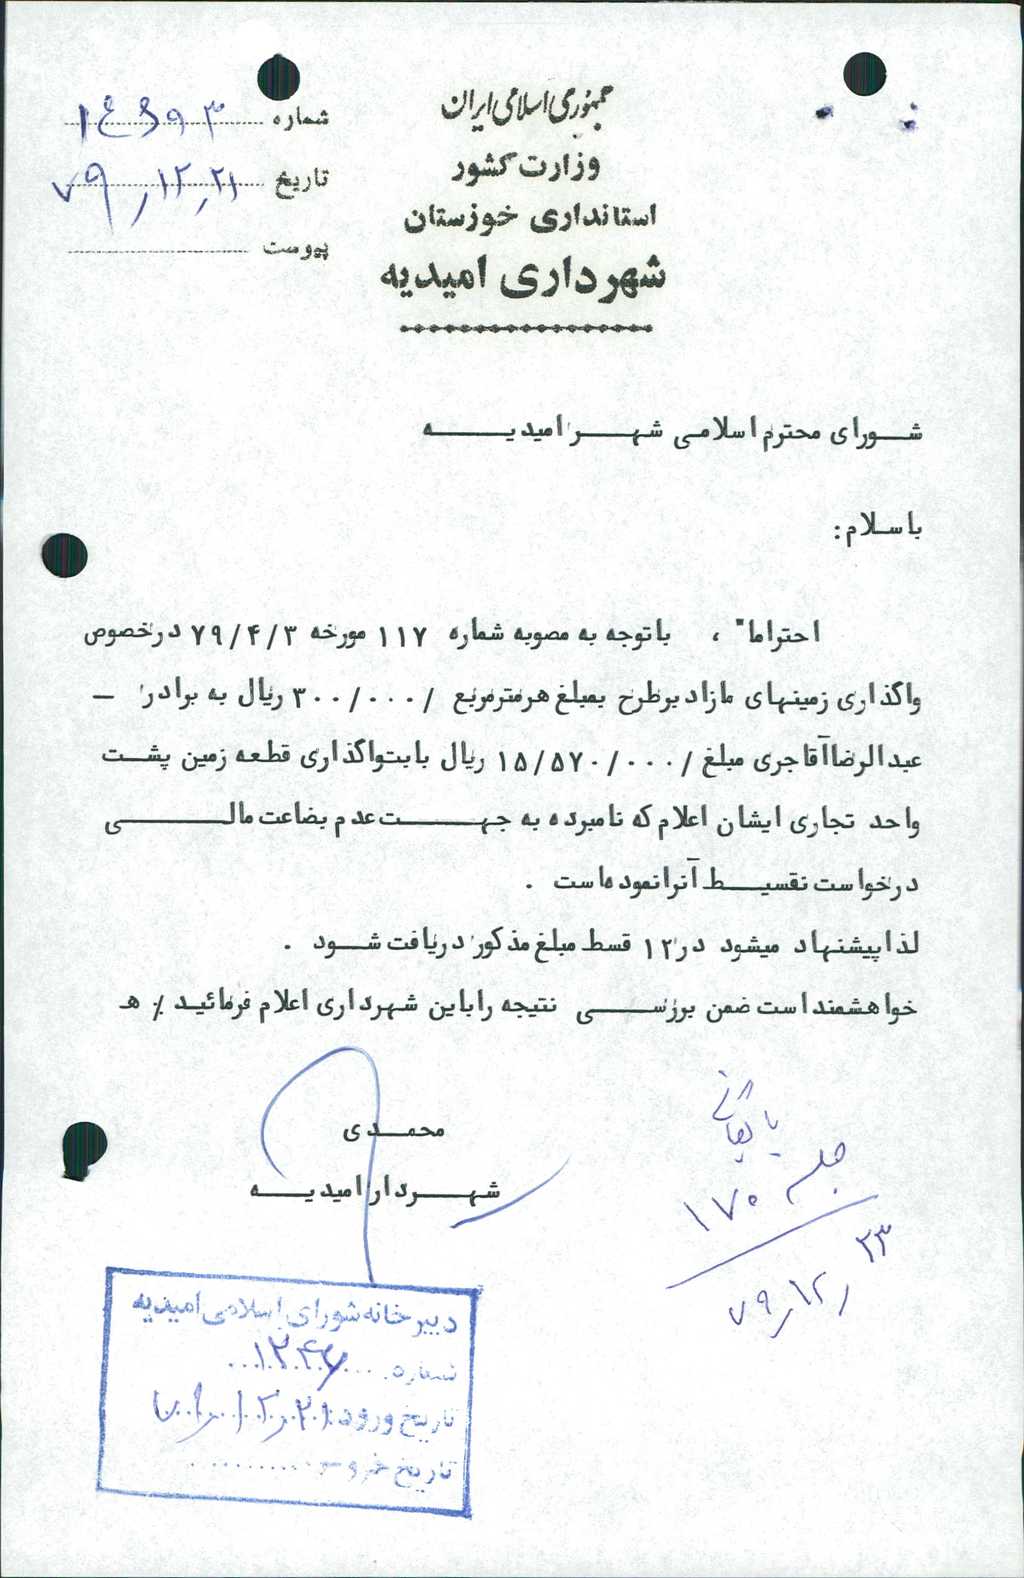 جمهوری اسلامی ایران
وزارت کشور
استانداری خوزستان
شهرداری امیدیه
شماره
تاریخ ۷۹/۱۲/۲۱
پیوست
شورای محترم اسلامی شهر امیدیه
باسلام:
احتراما" ، باتوجه به مصوبه شماره ۱۱۷ مورخه ۷۹/۴/۳ درخصوص
واگذاری زمینهای مازاد برطرح بمبلغ هرمترمربع /۳۰۰/۰۰۰ ریال به برادر –
عبدالرضاآقاجری مبلغ /۱۵/۵۷۰/۰۰۰ ریال بابت‌واگذاری قطعه زمین پشت
واحد تجاری ایشان اعلام که نامبرده به جهت عدم بضاعت مالی
درخواست نقسیط آنرانموده‌است .
لذاپیشنهاد میشود در۱۲ قسط مبلغ مذکور دریافت شود .
خواهشمنداست ضمن بررسی نتیجه راباین شهرداری اعلام فرمائید ٪ ه
محمدی
شهردار امیدیه
بایگانی
جلسه ۱۷۰
۷۹/۱۲/۲۳
دبیرخانه شورای اسلامی امیدیه
شماره
تاریخ ورود
تاریخ خروج